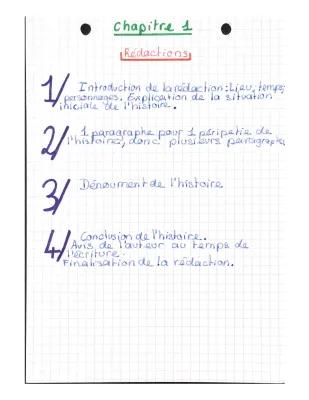 Chapitre 1
Rédactions
1/ Introduction de la rédaction: Lieu, temps,
personnages. Explication de la situation
iniciale de l'histoire.
2/ 1 paragraphe pour 1 péripetie de
l'histoires, donc plusieurs paragraphes
3/ Dénoument de l'histoire
4/ Conclusion de l'histoire.
Avis de l'auteur au temps de
l'écriture.
Finalisation de la rédaction.